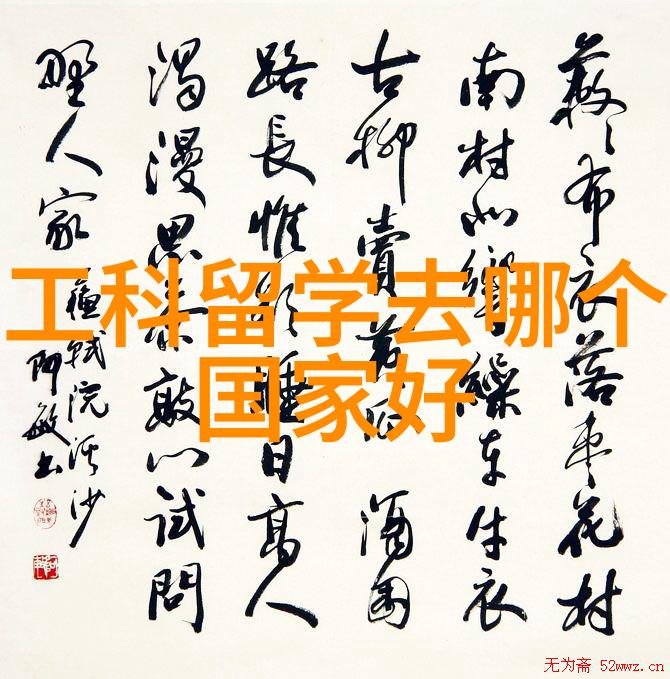 工科留学去哪个
国家好
蔌〻布衣落枣花村
南村北響繰车牛衣
古柳賣黄瓜 酒困
路長惟欲睡日高人
渴漫思茶敲门试問
野人家 蘇軾浣溪沙
阿敏书
无为斋 52wwz.cn